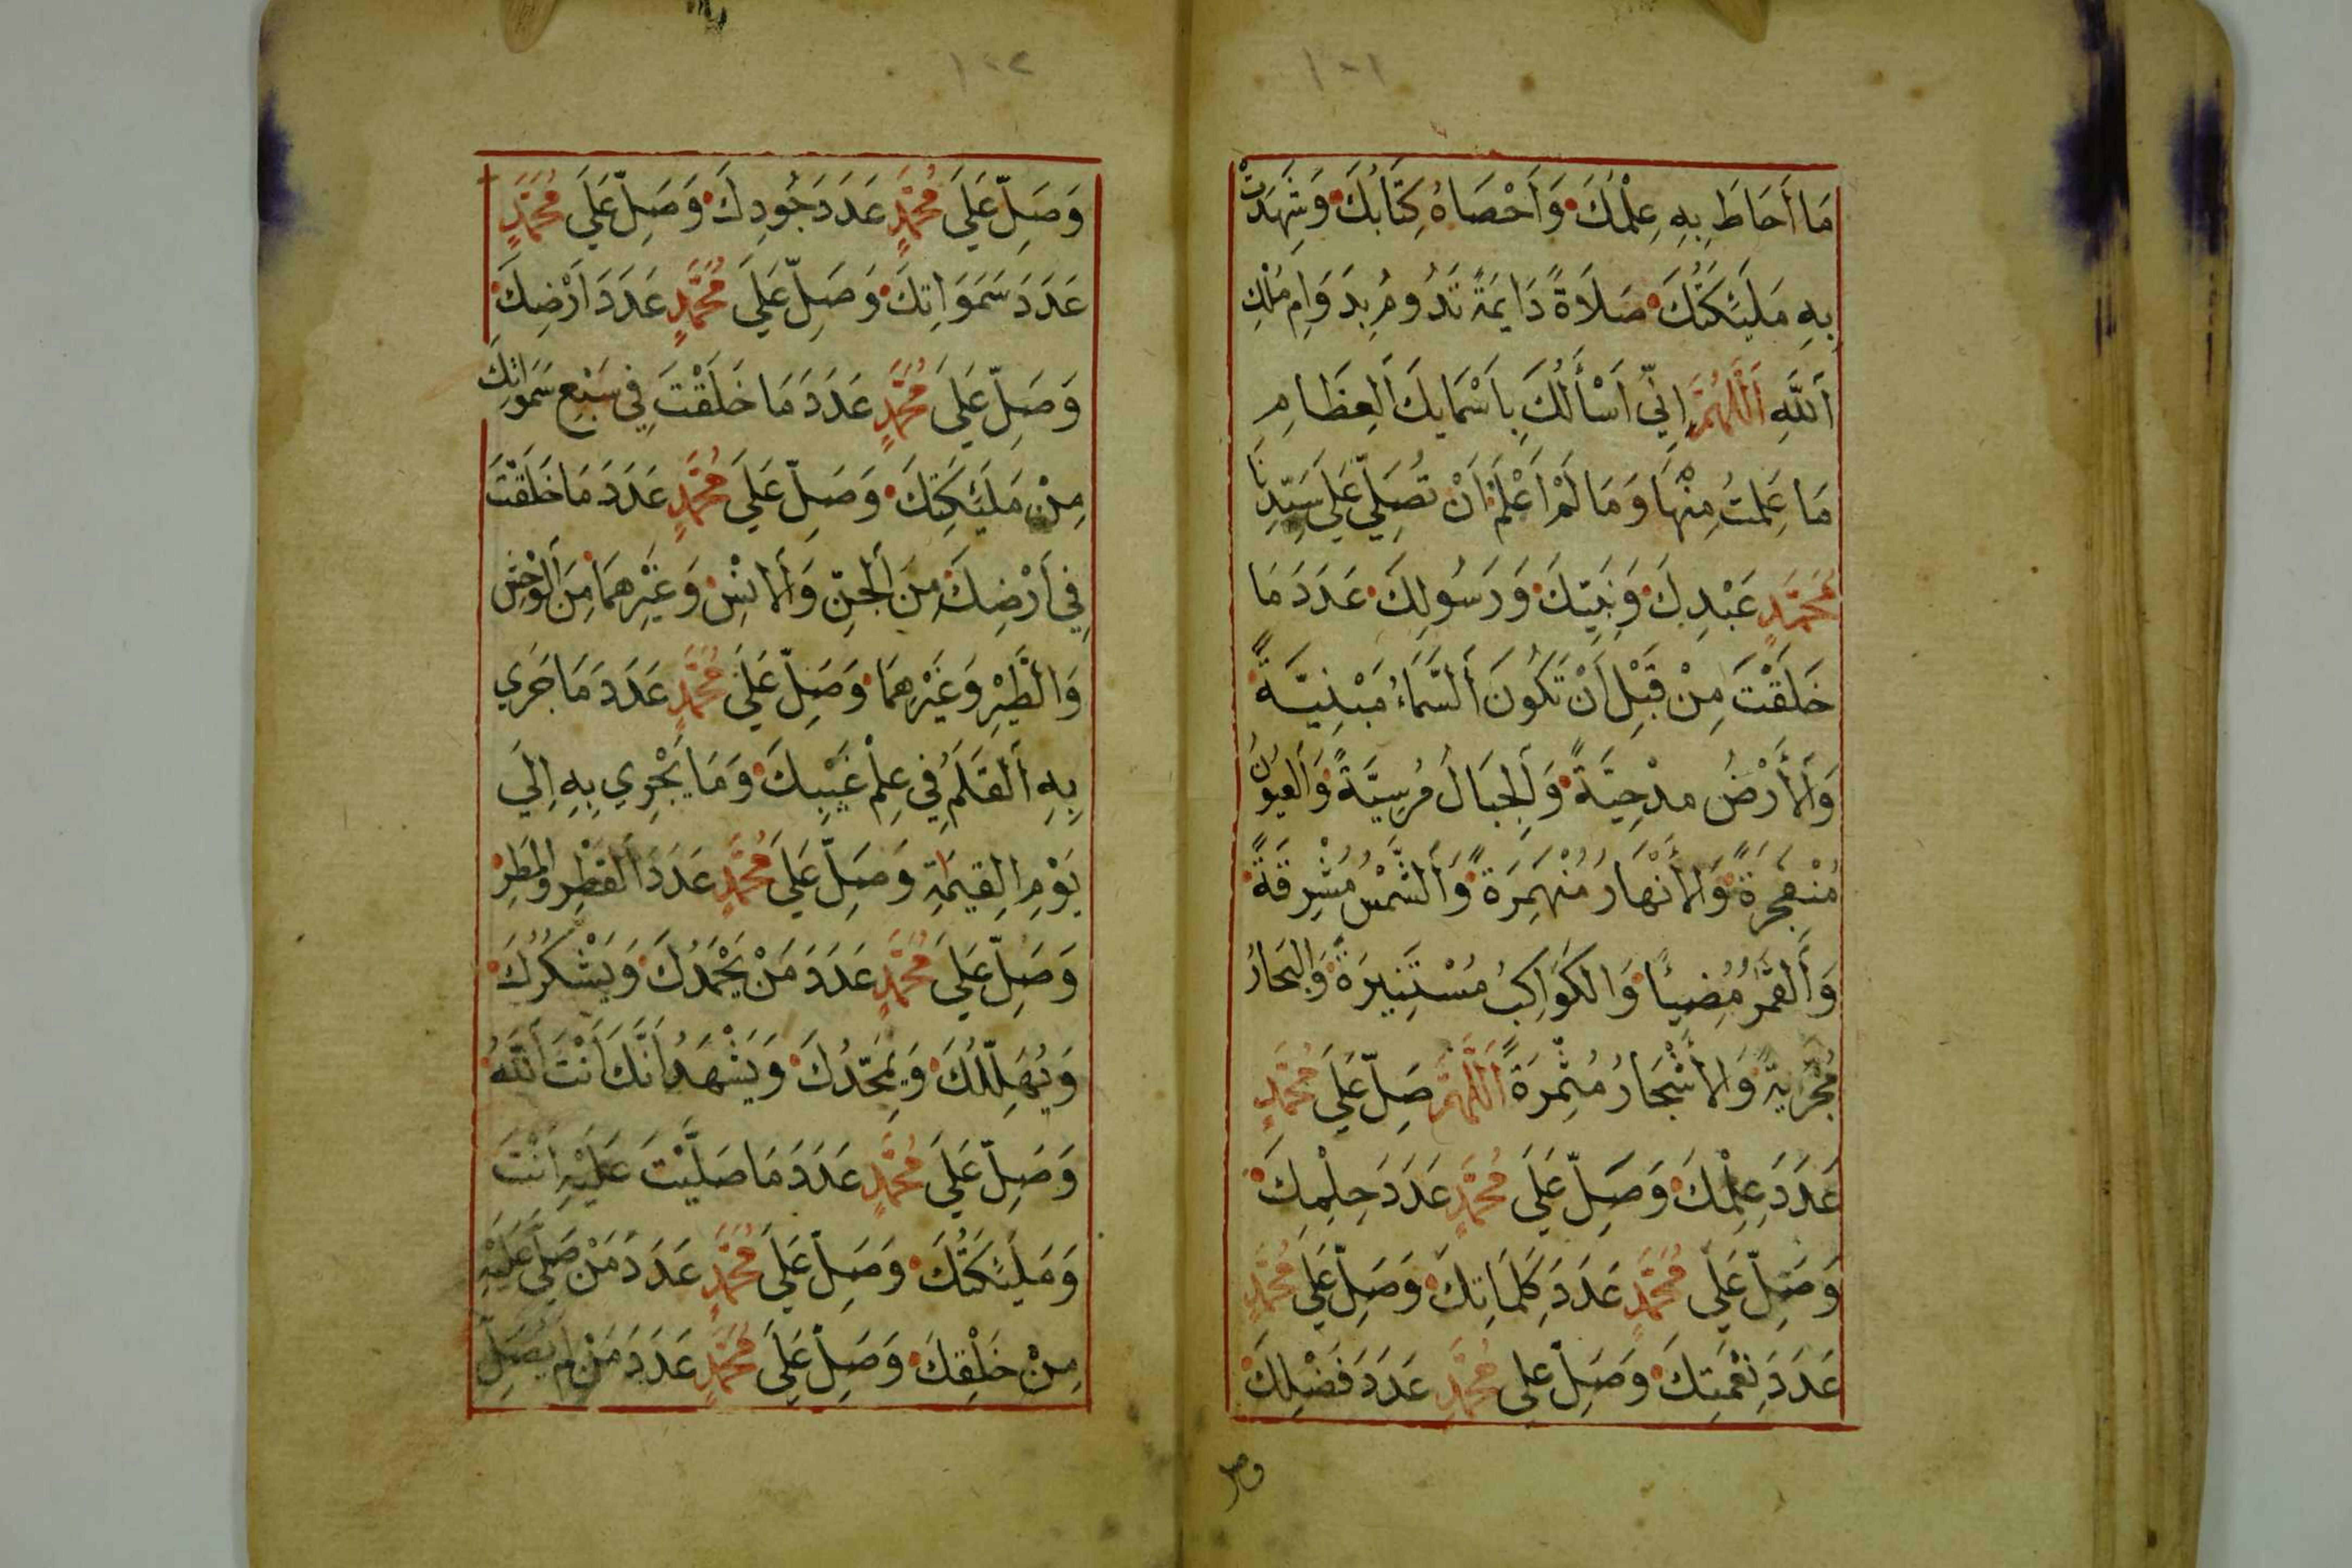 ١٠١
مَا أَحَاطَ بِهِ عِلْمُكَ وَأَحْصَاهُ كِتَابُكَ وَشَهِدَتْ
بِهِ مَلَئِكَتُكَ صَلَاةً دَايِمَةً تَدُومُ بِدَوَامِ مُلْكِ
اَللَّهِ اَللَّهُمَّ اِنِّي اَسْأَلُكَ بِاَسْمَايِكَ اَلْعِظَامِ
مَا عَلِمْتُ مِنْهَا وَمَا لَمْ اَعْلَمْ اَنْ تُصَلِّيَ عَلَى سَيِّدِنَا
مُحَمَّدٍ عَبْدِكَ وَنَبِيِّكَ وَرَسُولِكَ عَدَدَ مَا
خَلَقْتَ مِنْ قَبْلِ اَنْ تَكُونَ اَلسَّمَاءُ مَبْنِيَّةً
وَاَلْأَرْضُ مَدْحِيَّةً وَاَلْجِبَالُ مُرْسِيَّةً وَاَلْعُيُونُ
مُنْفَجِرَةً وَاَلْأَنْهَارُ مُنْهَمِرَةً وَاَلشَّمْسُ مُشْرِقَةً
وَاَلْقَمَرُ مُضِيئًا وَالكَوَاكِبُ مُسْتَنِيرَةً وَالبِحَارُ
مُجْرِيَةً وَالأَشْجَارُ مُثْمِرَةً اَللَّهُمَّ صَلِّ عَلَى مُحَمَّدٍ
عَدَدَ عِلْمِكَ وَصَلِّ عَلَى مُحَمَّدٍ عَدَدَ حِلْمِكَ
وَصَلِّ عَلَى مُحَمَّدٍ عَدَدَ كَلِمَاتِكَ وَصَلِّ عَلَى مُحَمَّدٍ
عَدَدَ نِعْمَتِكَ وَصَلِّ عَلَى مُحَمَّدٍ عَدَدَ فَضْلِكَ
وصل
١٠٢
وَصَلِّ عَلَى مُحَمَّدٍ عَدَدَ جُودِكَ وَصَلِّ عَلَى مُحَمَّدٍ
عَدَدَ سَمَوَاتِكَ وَصَلِّ عَلَى مُحَمَّدٍ عَدَدَ اَرْضِكَ
وَصَلِّ عَلَى مُحَمَّدٍ عَدَدَ مَا خَلَقْتَ فِي سَبْعِ سَمَوَاتِكَ
مِنْ مَلَئِكَتِكَ وَصَلِّ عَلَى مُحَمَّدٍ عَدَدَ مَا خَلَقْتَ
فِي اَرْضِكَ مِنَ اَلْجِنِّ وَاَلْاِنْسِ وَغَيْرِهِمَا مِنَ اَلْوَحْشِ
وَالْطَّيْرِ وَغَيْرِهِمَا وَصَلِّ عَلَى مُحَمَّدٍ عَدَدَ مَا جَرَي
بِهِ اَلْقَلَمُ فِي عِلْمِ غَيْبِكَ وَمَا يَجْرِي بِهِ اِلَيَ
يَوْمِ الِقِيَمَةِ وَصَلِّ عَلَى مُحَمَّدٍ عَدَدَ اَلْقَطْرِ وَالمَطَرِ
وَصَلِّ عَلَى مُحَمَّدٍ عَدَدَ مَنْ يَحْمَدُكَ وَيَشْكُرُكَ
وَيُهَلِّلُكَ وَيُمَجِّدُكَ وَيَشْهَدُ اَنَّكَ اَنْتَ اَللَّهُ
وَصَلِّ عَلَى مُحَمَّدٍ عَدَدَ مَا صَلَّيْتَ عَلَيْهِ اَنْتَ
وَمَلَئِكَتُكَ وَصَلِّ عَلَى مُحَمَّدٍ عَدَدَ مَنْ صَلَّى عَلَيْهِ
مِنْ خَلْقِكَ وَصَلِّ عَلَى مُحَمَّدٍ عَدَدَ مَنْ لَمْ يُصَلِّ